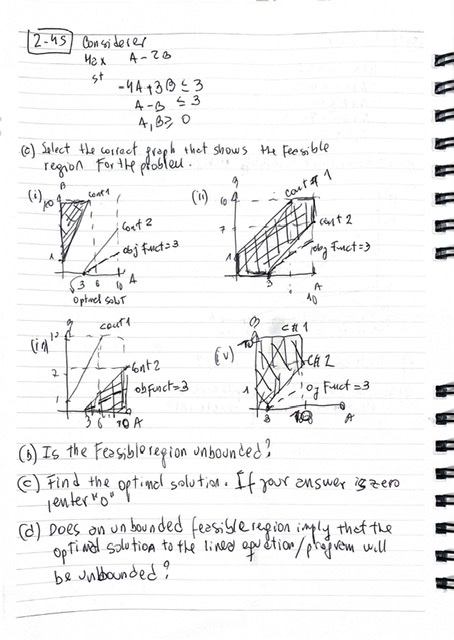 2-45 Considerer
Max A - 2B
st
-4A + 3B ≤ 3
A - B ≤ 3
A, B ≥ 0
(c) Select the correct graph that shows the Feasible
region For the problem.
(i) B
10
cont 1
cont 2
obj Funct = 3
1
3 6 10 A
Optimal solut
(ii)
10
cont # 1
7
cont 2
obj Funct = 3
1
3
A
10
(iii)
10
cont 1
cont 2
obj Funct = 3
1
3 6 10 A
(iv) B
10
C# 1
C# 2
1
oj Funct = 3
3 10 A
(b) Is the Feasible region unbounded?
(c) Find the optimal solution. If your answer is zero
enter "0"
(d) Does an unbounded feasible region imply that the
optimal solution to the lined equation/program will
be unbounded?